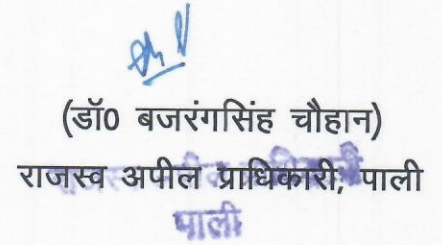 (डॉ0 बजरंगसिंह चौहान)
राजस्व अपील प्राधिकारी, पाली
पाली